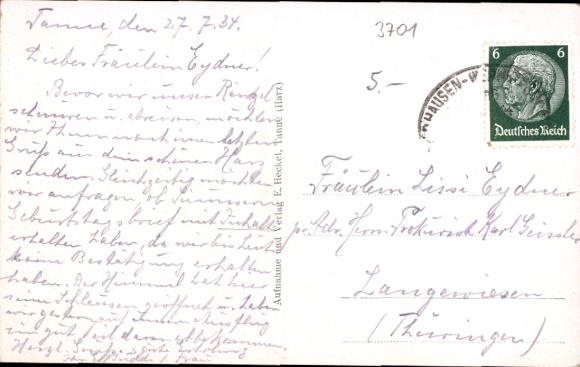 Tanne, den 27. 7. 34.
Liebes Fräulein Eydner!
Bevor wir unser Ränzel
schnüren u. abreisen, möchten
wir Ihnen noch einen letzten
Gruß aus dem schönen Harz
senden. Gleichzeitig möchten
wir anfragen, ob Sie unsern
Geburtstagsbrief mit Inhalt
erhalten haben, da wir bis heute
keine Bestätigung erhalten
haben. Der Himmel hat hier
seine Schleusen geöffnet u. haben
wir gestern auf unserm Ausflug
ein gut Teil davon abbekommen.
Herzl. Grüße u. gute Erholung
u. Frau
Aufnahme und Verlag E. Heckel, Tanne (Harz)
3701
5.-
HAUSEN-W
6 6
Deutsches Reich
Fräulein Lissi Eydner
pr. Adr. Herrn Prokurist Karl Geissler
Langewiesen
(Thüringen)